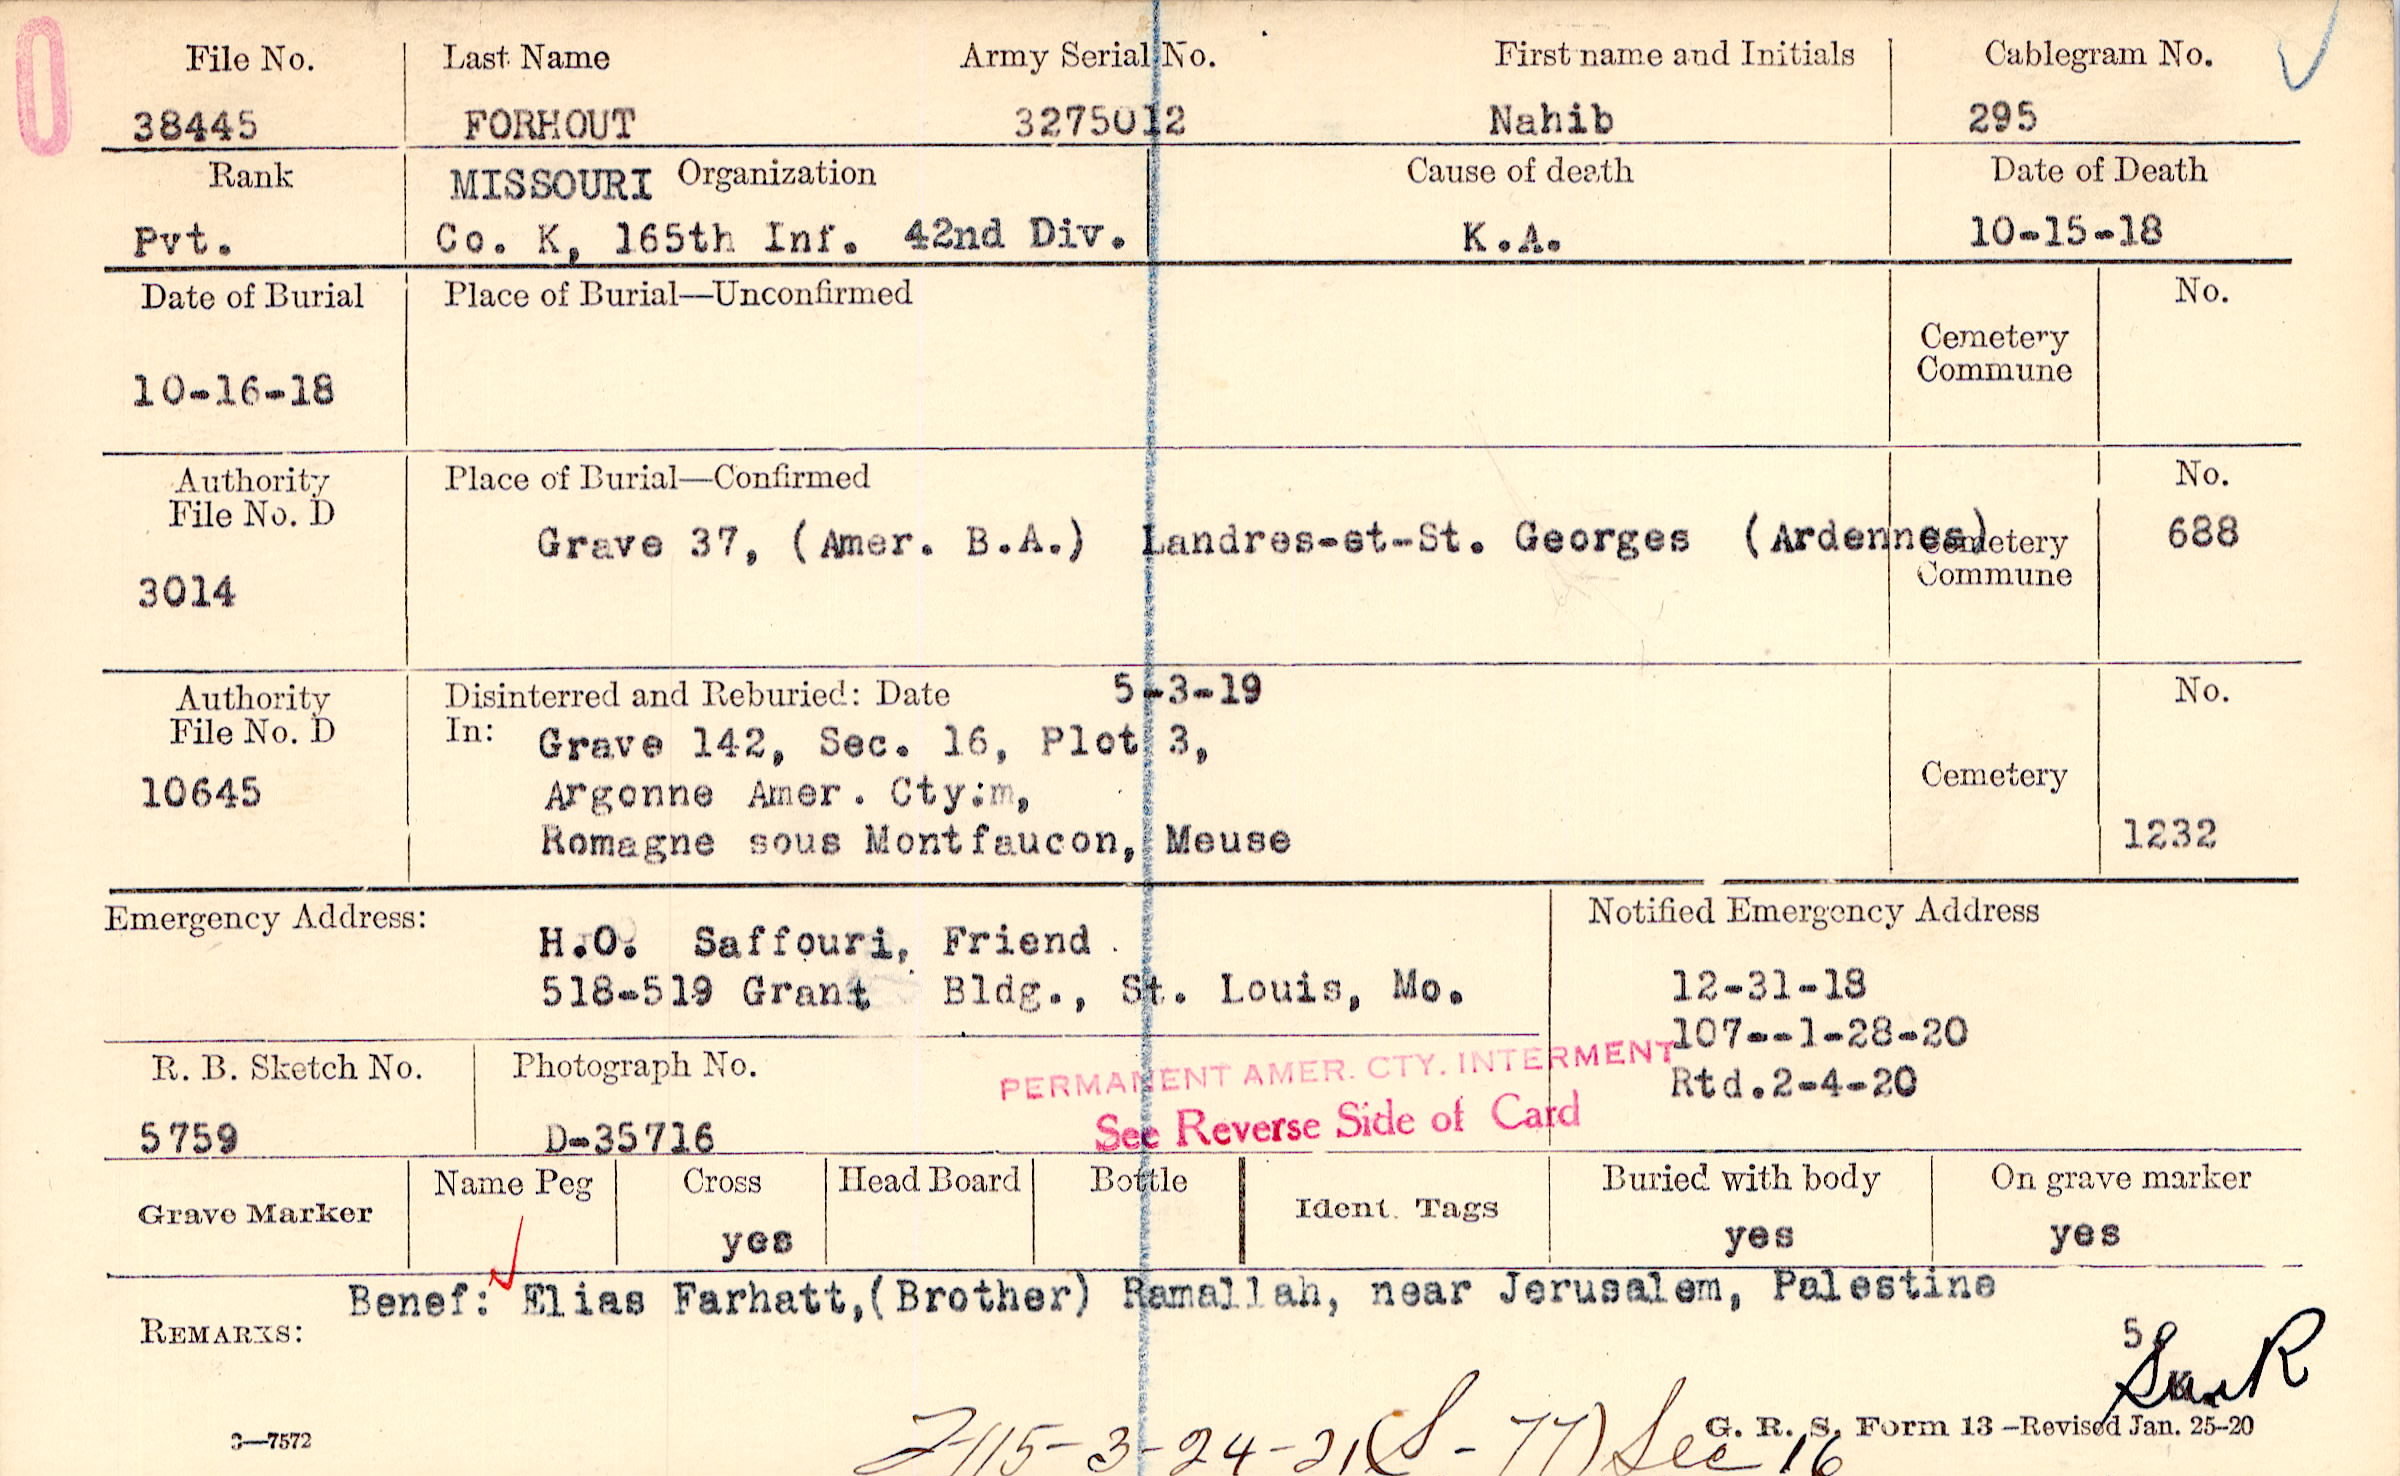 File No. Last Name Army Serial No. First name and Initials Cablegram No.
38445 FORHOUT 3275012 Nahib 295
Rank MISSOURI Organization Cause of death Date of Death
Pvt. Co. K, 165th Inf. 42nd Div. K.A. 10-15-18
Date of Burial Place of Burial—Unconfirmed No.
Cemetery
Commune
10-16-18
Authority Place of Burial—Confirmed No.
File No. D
Grave 37, (Amer. B.A.) Landres-et-St. Georges (Ardennes) Cemetery 688
Commune
3014
Authority Disinterred and Reburied: Date 5-3-19 No.
File No. D In: Grave 142, Sec. 16, Plot 3,
10645 Argonne Amer. Cty:m, Cemetery
Romagne sous Montfaucon, Meuse 1232
Emergency Address: Notified Emergency Address
H.O. Saffouri, Friend
518-519 Grant Bldg., St. Louis, Mo. 12-31-18
107--1-28-20
R. B. Sketch No. Photograph No. PERMANENT AMER. CTY. INTERMENT Rtd.2-4-20
See Reverse Side of Card
5759 D-35716
Grave Marker Name Peg Cross Head Board Bottle Ident. Tags Buried with body On grave marker
yes yes yes
Benef: Elias Farhatt,(Brother) Ramallah, near Jerusalem, Palestine
REMARKS:
5
G. R. S. Form 13—Revised Jan. 25-20
3—7572 3-24-21(S-77) Sec 16